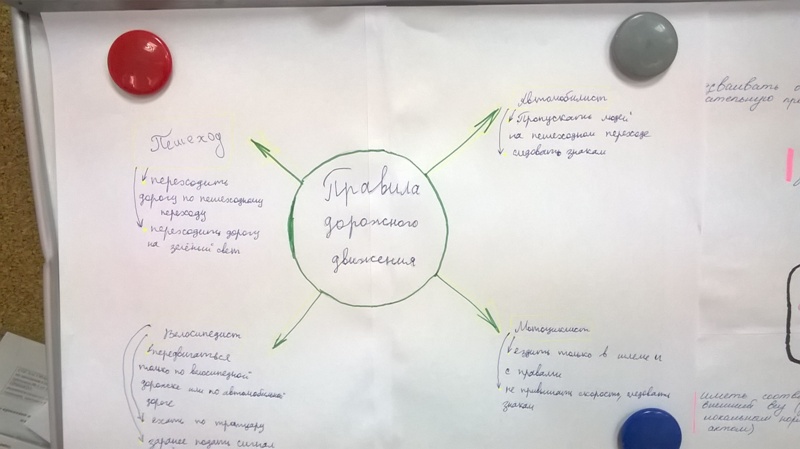 Правила
дорожного
движения
Пешеход
переходить
дорогу по пешеходному
переходу
переходить дорогу
на зелёный свет
Автомобилист
Пропускать людей
на пешеходном переходе
следовать знакам
Велосипедист
передвигаться
только по велосипедной
дорожке или по автомобильной
дороге
ехать по тротуару
заранее подать сигнал
Мотоциклист
ездить только в шлеме и
с правами
не привышать скорость, следовать
знакам
иметь соотв
внешний вид
локальном норм
актом)